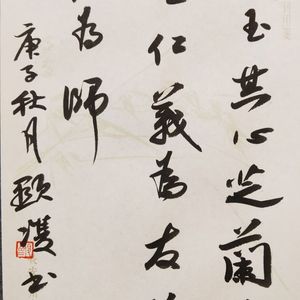 玉其心芝蘭
仁義為友
為師
庚子秋月书